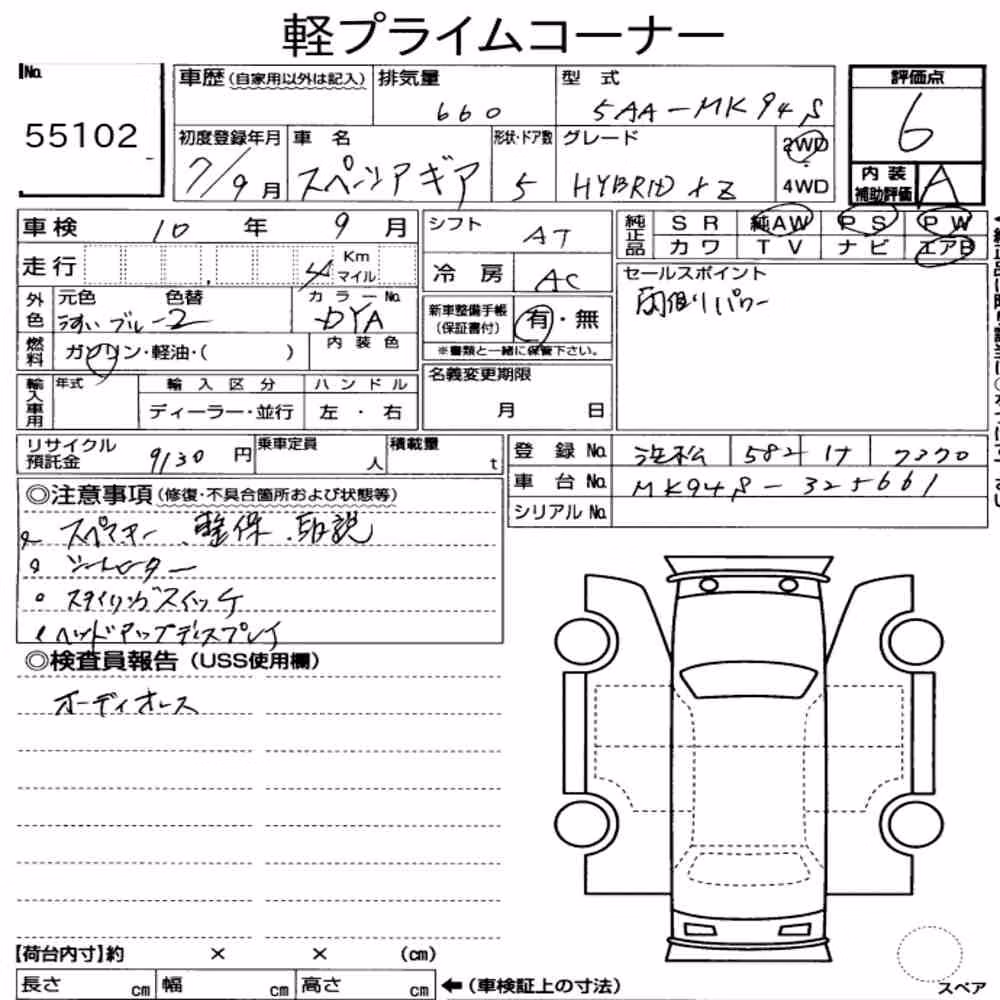 軽プライムコーナー
No.
55102
車歴(自家用以外は記入)
排気量
660
型式
5AA-MK94S
評価点
6
初度登録年月
7/9月
車名
スペーシアギア
形状・ドア数
5
グレード
HYBRID XZ
2WD
・
4WD
内装
補助評価
A
車検 10 年 9 月
シフト AT
純正品
SR 純AW PS PW
カワ TV ナビ エアB
走行 4 Km マイル
冷房 AC
セールスポイント
両側パワー
外色
元色 色替 カラーNo.
うすいブルー2 DYA
新車整備手帳
(保証書付)
有・無
※書類と一緒に保管下さい。
燃料
ガソリン・軽油・( )
内装色
輸入車用
年式 輸入区分 ハンドル
ディーラー・並行 左・右
名義変更期限
月 日
リサイクル
預託金
9130 円
乗車定員
人
積載量
t
登録No. 浜松 582 け 7370
車台No. MK94S-325661
シリアルNo.
◎注意事項(修復・不具合箇所および状態等)
スペアキー、整保、取説
シートヒーター
ステアリングスイッチ
ヘッドアップディスプレイ
◎検査員報告(USS使用欄)
オーディオレス
【荷台内寸】約 × × (cm)
長さ cm 幅 cm 高さ cm
←(車検証上の寸法)
スペア